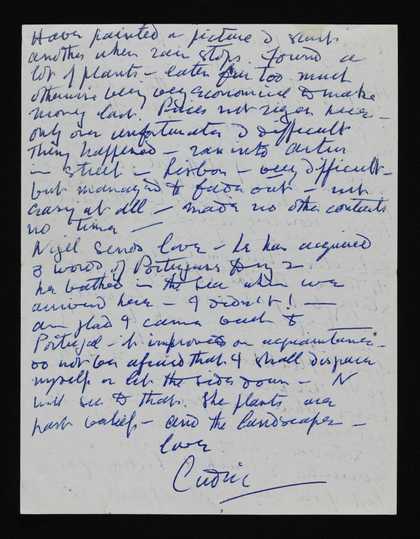 Have painted a picture & start
another when rain stops. Found a
lot of plants – eaten far too much
otherwise very very economical to make
money last. Prices not risen here –
only one unfortunate & difficult
thing happened – ran into
in street in Lisbon – very difficult –
but managed to fade out – not
easy at all – made no other contacts
no time –
Nigel sends love – he has acquired
3 words of Portuguese & my 2.
he bathed in the sea when we
arrived here – I didn't! —
am glad I came back to
Portugal – it improves on acquaintance –
do not be afraid that I shall disgrace
myself or let the side down – N
will see to that. The plants are
past belief – and the landscape –
love
Cedric